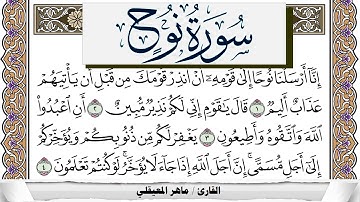 سورة نوح
إِنَّآ أَرْسَلْنَا نُوحًا إِلَىٰ قَوْمِهِۦٓ أَنْ أَنذِرْ قَوْمَكَ مِن قَبْلِ أَن يَأْتِيَهُمْ
عَذَابٌ أَلِيمٌ ١ قَالَ يَٰقَوْمِ إِنِّي لَكُمْ نَذِيرٌ مُّبِينٌ ٢ أَنِ ٱعْبُدُوا۟
ٱللَّهَ وَٱتَّقُوهُ وَأَطِيعُونِ ٣ يَغْفِرْ لَكُم مِّن ذُنُوبِكُمْ وَيُؤَخِّرْكُمْ
إِلَىٰٓ أَجَلٍ مُّسَمًّى إِنَّ أَجَلَ ٱللَّهِ إِذَا جَآءَ لَا يُؤَخَّرُ لَوْ كُنتُمْ تَعْلَمُونَ ٤
القارئ / ماهر المعيقلي